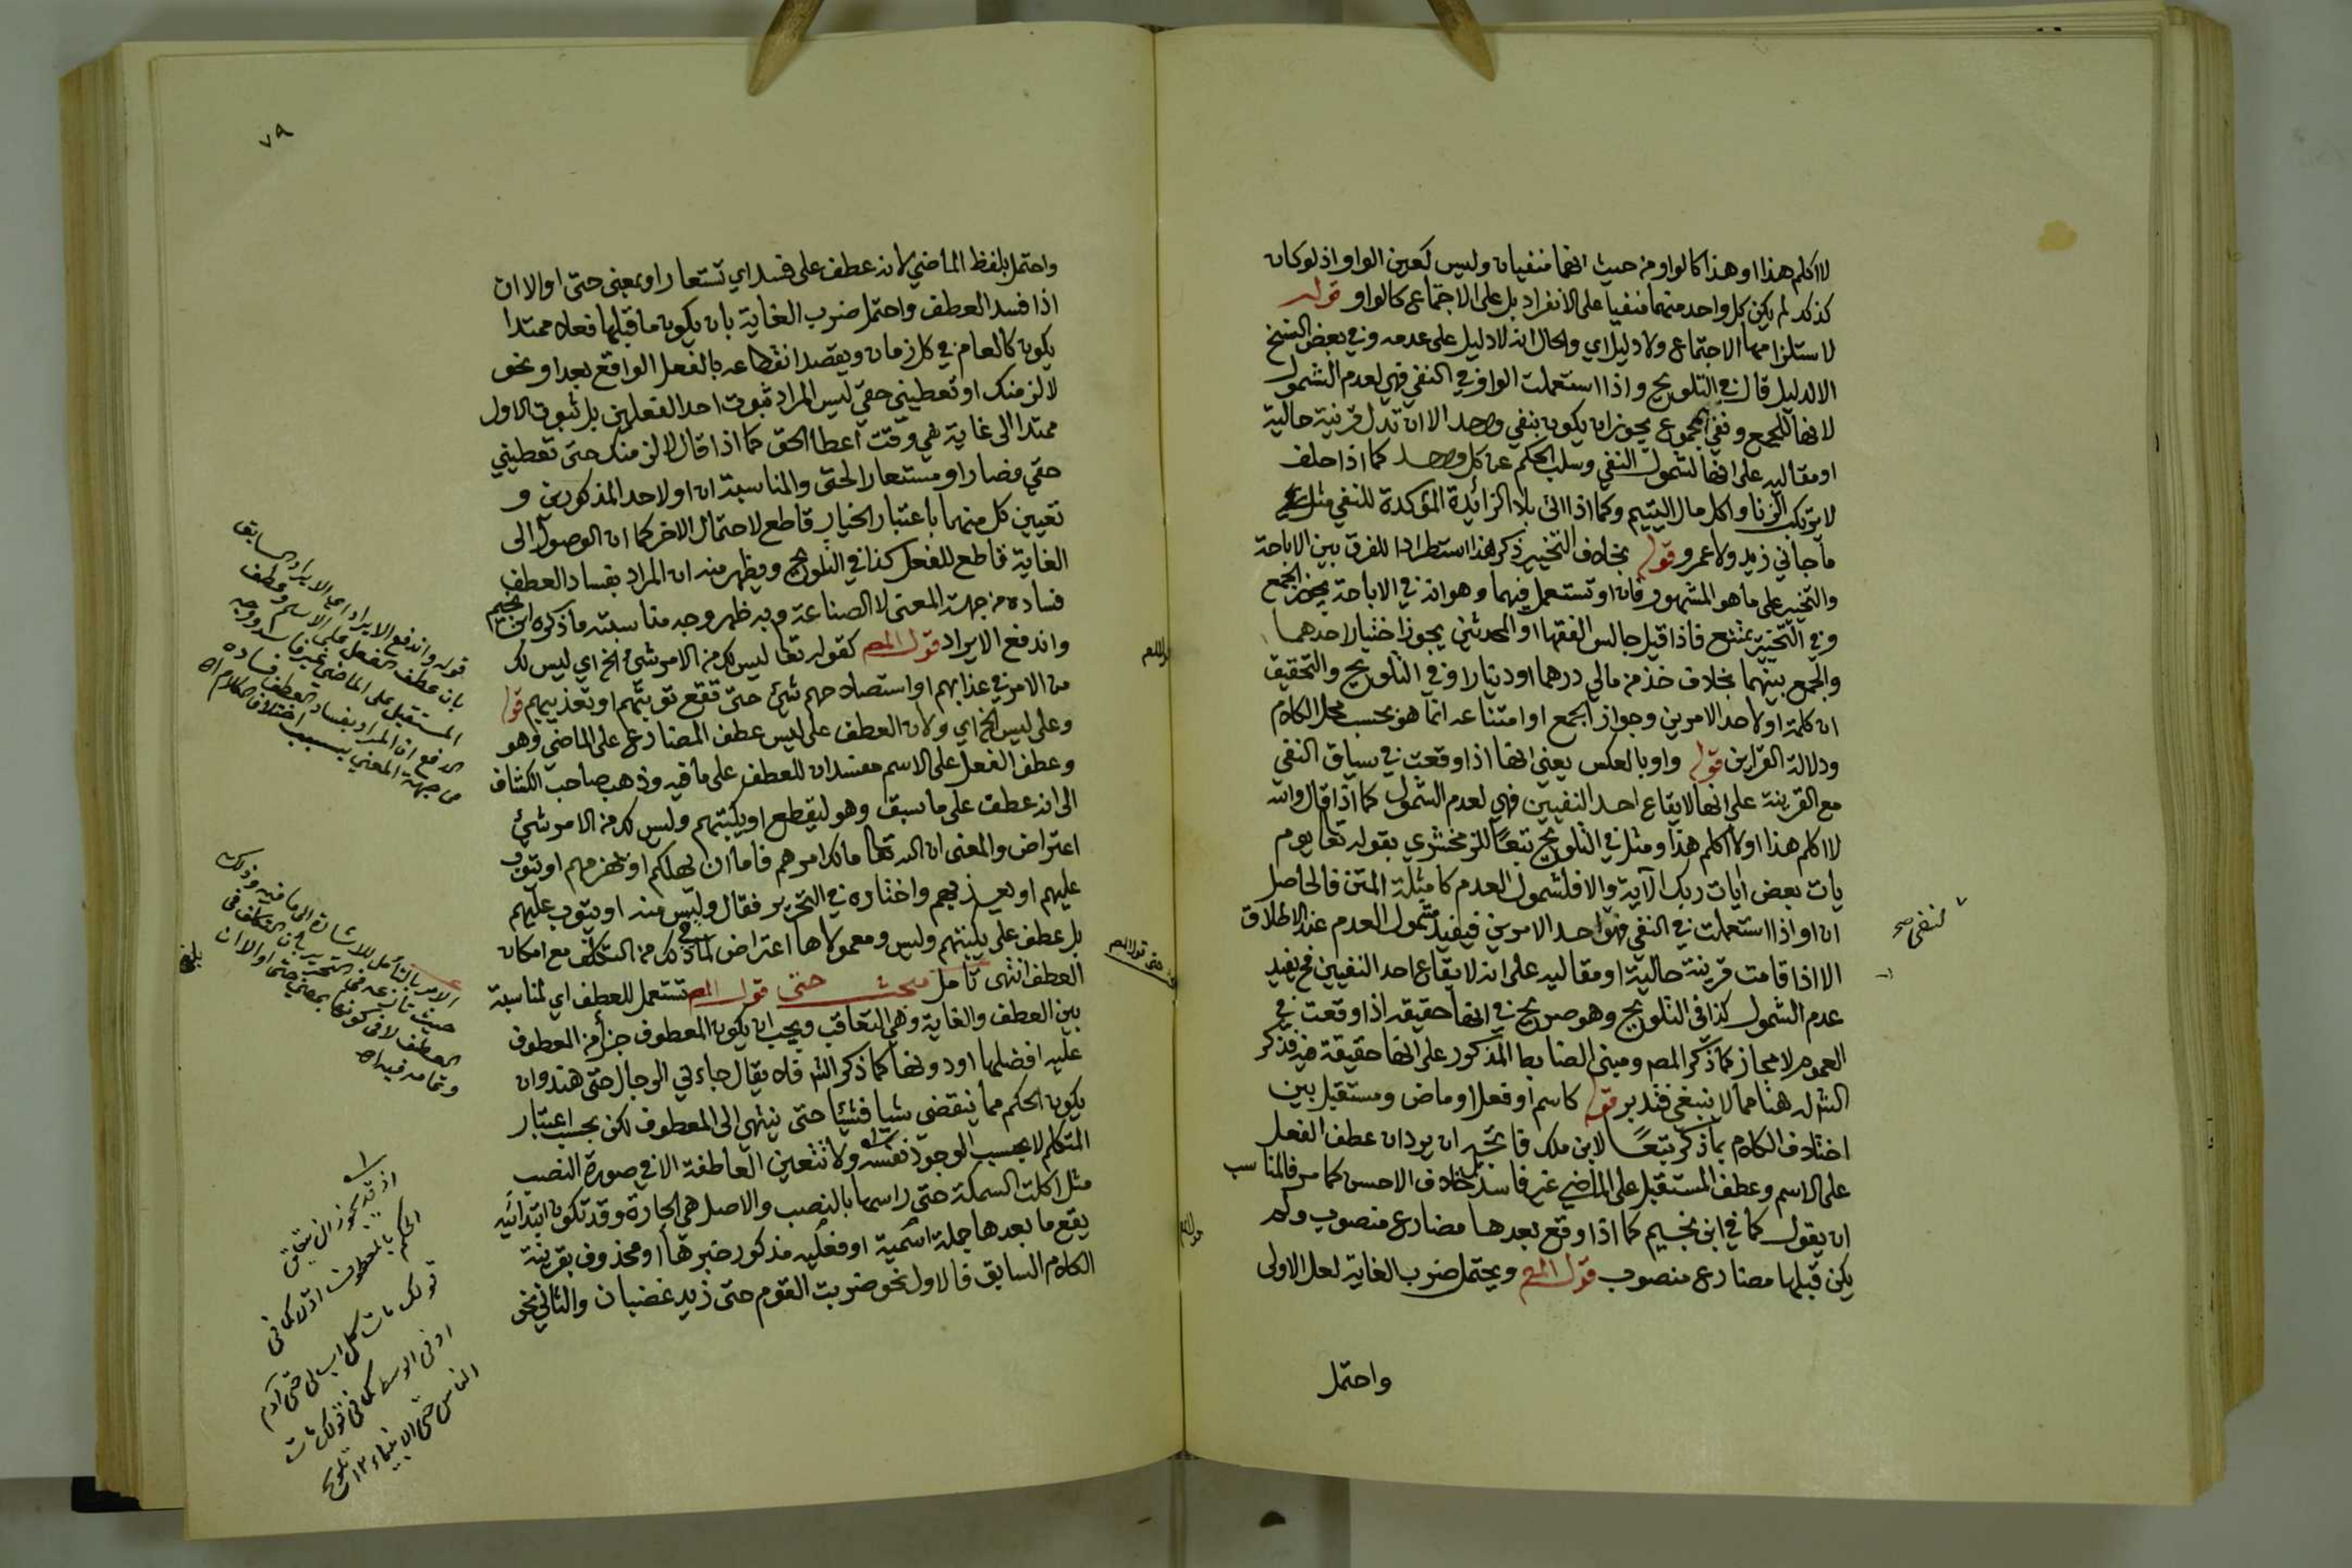 لا اكلم هذا او هذا كالواو من حيث انهما منفيان وليس كعين الواو اذ لو كان
كذلك لم يكن كل واحد منهما منفيا على الانفراد بل على الاجتماع كالواو قوله
لاستلزامها الاجتماع ولا دليل اي والحال انه لا دليل على عدمه وفي بعض النسخ
الا لدليل قال في التلويح واذا استعملت الواو في النفي فهي لعدم الشمول
لانها للجمع ونفي المجموع يجوز ان يكون بنفي واحد الا ان تدل قرينة حالية
او مقاليه على انها لشمول النفي وسلب الحكم عن كل واحد كما اذا حلف
لا يرتكب الزنا واكل مال اليتيم وكما اذا اتى بلا الزائدة المؤكدة للنفي مثل
ما جاني زيد ولا عمرو قوله بخلاف التخيير ذكر هذا استطرادا للفرق بين الاباحة
والتخيير على ما هو المشهور فان او تستعمل فيهما وهو انه في الاباحة يجوز الجمع
وفي التخيير يمتنع فاذا قيل جالس الفقها او المحدثين يجوز اختيار احدهما
والجمع بينهما بخلاف خذ من مالي درهما او دينارا وفي التلويح والتحقيق
ان كلمة او لاحد الامرين وجواز الجمع او امتناعه انما هو بحسب محل الكلام
ودلالة القراين قوله واو بالعكس يعني انها اذا وقعت في سياق النفي
مع القرينة على انها لايقاع احد النفيين فهي لعدم الشمول كما اذا قال والله
لا اكلم هذا او لا اكلم هذا ومثل في التلويح تبعا للزمخشري بقوله تعا يوم
يات بعض ايات ربك الآية والا فلشمول العدم كامثلة المتن فالحاصل
ان او اذا استعملت في النفي فهو احد الامرين فيفيد شمول العدم عند الاطلاق
الا اذا قامت قرينة حالية او مقاليه على انه لايقاع احد النفيين فح يفيد
عدم الشمول كذا في التلويح وهو صريح في انها حقيقه اذا وقعت في
العموم لا مجاز كما ذكر المص ومبنى الضابط المذكور على انها حقيقة فيه فذكر
الش له هنا مما لا ينبغي فتدبر قوله كاسم او فعل او ماض ومستقبل بين
اختلاف الكلام بما ذكر تبعا لابن ملك فاتجه ان يرد ان عطف الفعل
على الاسم وعطف المستقبل على الماضي غير فاسد بخلاف الاحسن كما مر فالمناسب
ان يقول كما في ابن نجيم كما اذا وقع بعدها مضارع منصوب ولم
يكن قبلها مضارع منصوب قول المص ويحتمل ضرب الغاية لعل الاولى
واحتمل
لنفى صح
٧٩
واحتمل بلفظ الماضي لانه عطف على فسد اي تستعار او بمعنى حتى او الا ان
اذا فسد العطف واحتمل ضرب الغاية بان يكون ما قبلها فعلا ممتدا
يكون كالعام في كل زمان ويقصد انقطاعه بالفعل الواقع بعد او نحو
لالزمنك او تعطيني حقي ليس المراد ثبوت احد الفعلين بل ثبوت الاول
ممتدا الى غاية هي وقت اعطا الحق كما اذا قال لالزمنك حتى تعطيني
حقي فصار او مستعارا لحتى والمناسبة ان او لاحد المذكورين و
تعيين كل منهما باعتبار الخيار قاطع لاحتمال الاخر كما ان الوصول الى
الغاية قاطع للفعل كذا في التلويح ويظهر منه ان المراد بفساد العطف
فساده من جهة المعنى لا الصناعة وبه ظهر وجه مناسبته ما ذكره ابن نجيم
واندفع الايراد قول المص كقوله تعا ليس لك من الامر شئ الخ اي ليس لك
من الامر في عذابهم او استصلاحهم شئ حتى تقع توبتهم او تعذيبهم قوله
وعلى ليس الخ اي ولان العطف على ليس عطف المضارع على الماضي وهو
وعطف الفعل على الاسم مفسدان للعطف على ما فيه وذهب صاحب الكشاف
الى انه عطف على ما سبق وهو ليقطع او يكبتهم وليس لك من الامر شئ
اعتراض والمعنى ان الله تعا مالك امرهم فاما ان يهلكهم او يهزمهم او يتوب
عليهم او يعذبهم واختاره في التحرير فقال وليس منه او يتوب عليهم
بل عطف على يكبتهم وليس ومعمولاها اعتراض لما في ذلك من التكلف مع امكان
العطف انتهى تامل مبحث حتى قول المص تستعمل للعطف اي لمناسبة
بين العطف والغاية وهي التعاقب ويجب ان يكون المعطوف جزأ من المعطوف
عليه افضلها او دونها كما ذكر الش فلا يقال جاءني الرجال حتى هند وان
يكون الحكم مما ينقضي شيا فشيئا حتى ينتهي الى المعطوف لكن بحسب اعتبار
المتكلم لا بحسب الوجود نفسه ولا تتعين العاطفة الا في صورة النصب
مثل اكلت السمكة حتى راسها بالنصب والاصل هي الجارة وقد تكون ابتدائيه
يقع ما بعدها جملة اسمية او فعليه مذكور خبرها او محذوف بقرينة
الكلام السابق فالاول نحو ضربت القوم حتى زيد غضبان والثاني نحو
قوله واندفع الايراد اي الايراد السابق
بان عطف الفعل على الاسم وعطف
المستقبل على الماضي غير فاسد ووجه
الدفع ان المراد بفساد العطف فساده
من جهة المعنى بسبب اختلاف الكلام اه
الامر بالتأمل للاشارة الى ما فيه وذلك
حيث
العطف لا في كونها بمعنى حتى او الا ان
وتمامه فيه اه
اذ قد يجوز ان يتعلق
الحكم بالمعطوف اولا كما في
قولك مات كل اب لي حتى آدم
او في الوسط كما في قولك مات
الناس حتى الانبياء ١٢ تلويح